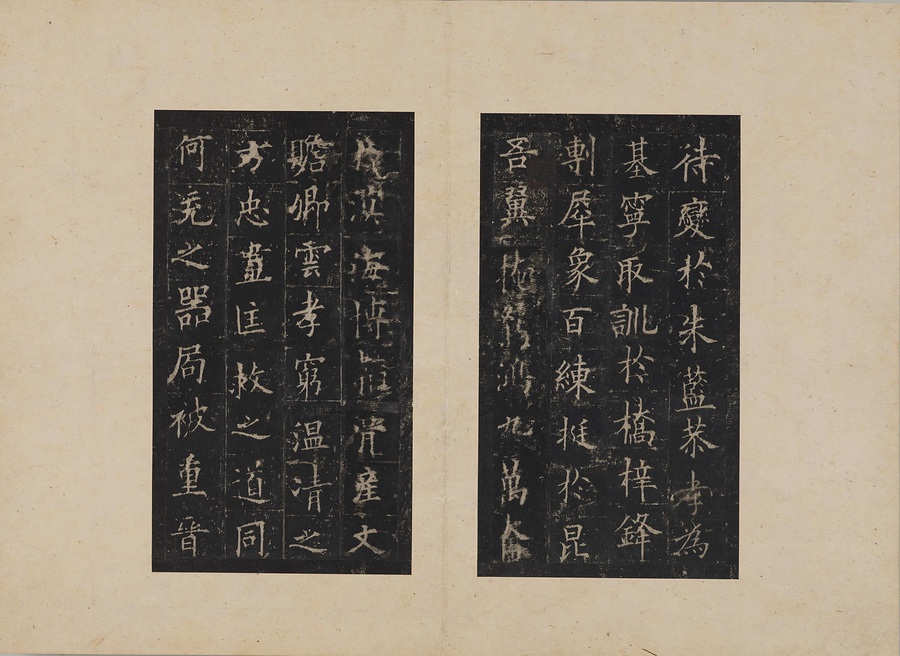 待變於朱藍恭孝為
基寧取訓於橋梓鋒
剸犀象百練挺於昆
吾翼鴻九萬奮
於溟海博產文
瞻卿雲孝窮溫凊之
方忠盡匡救之道同
何充之器局被重晉